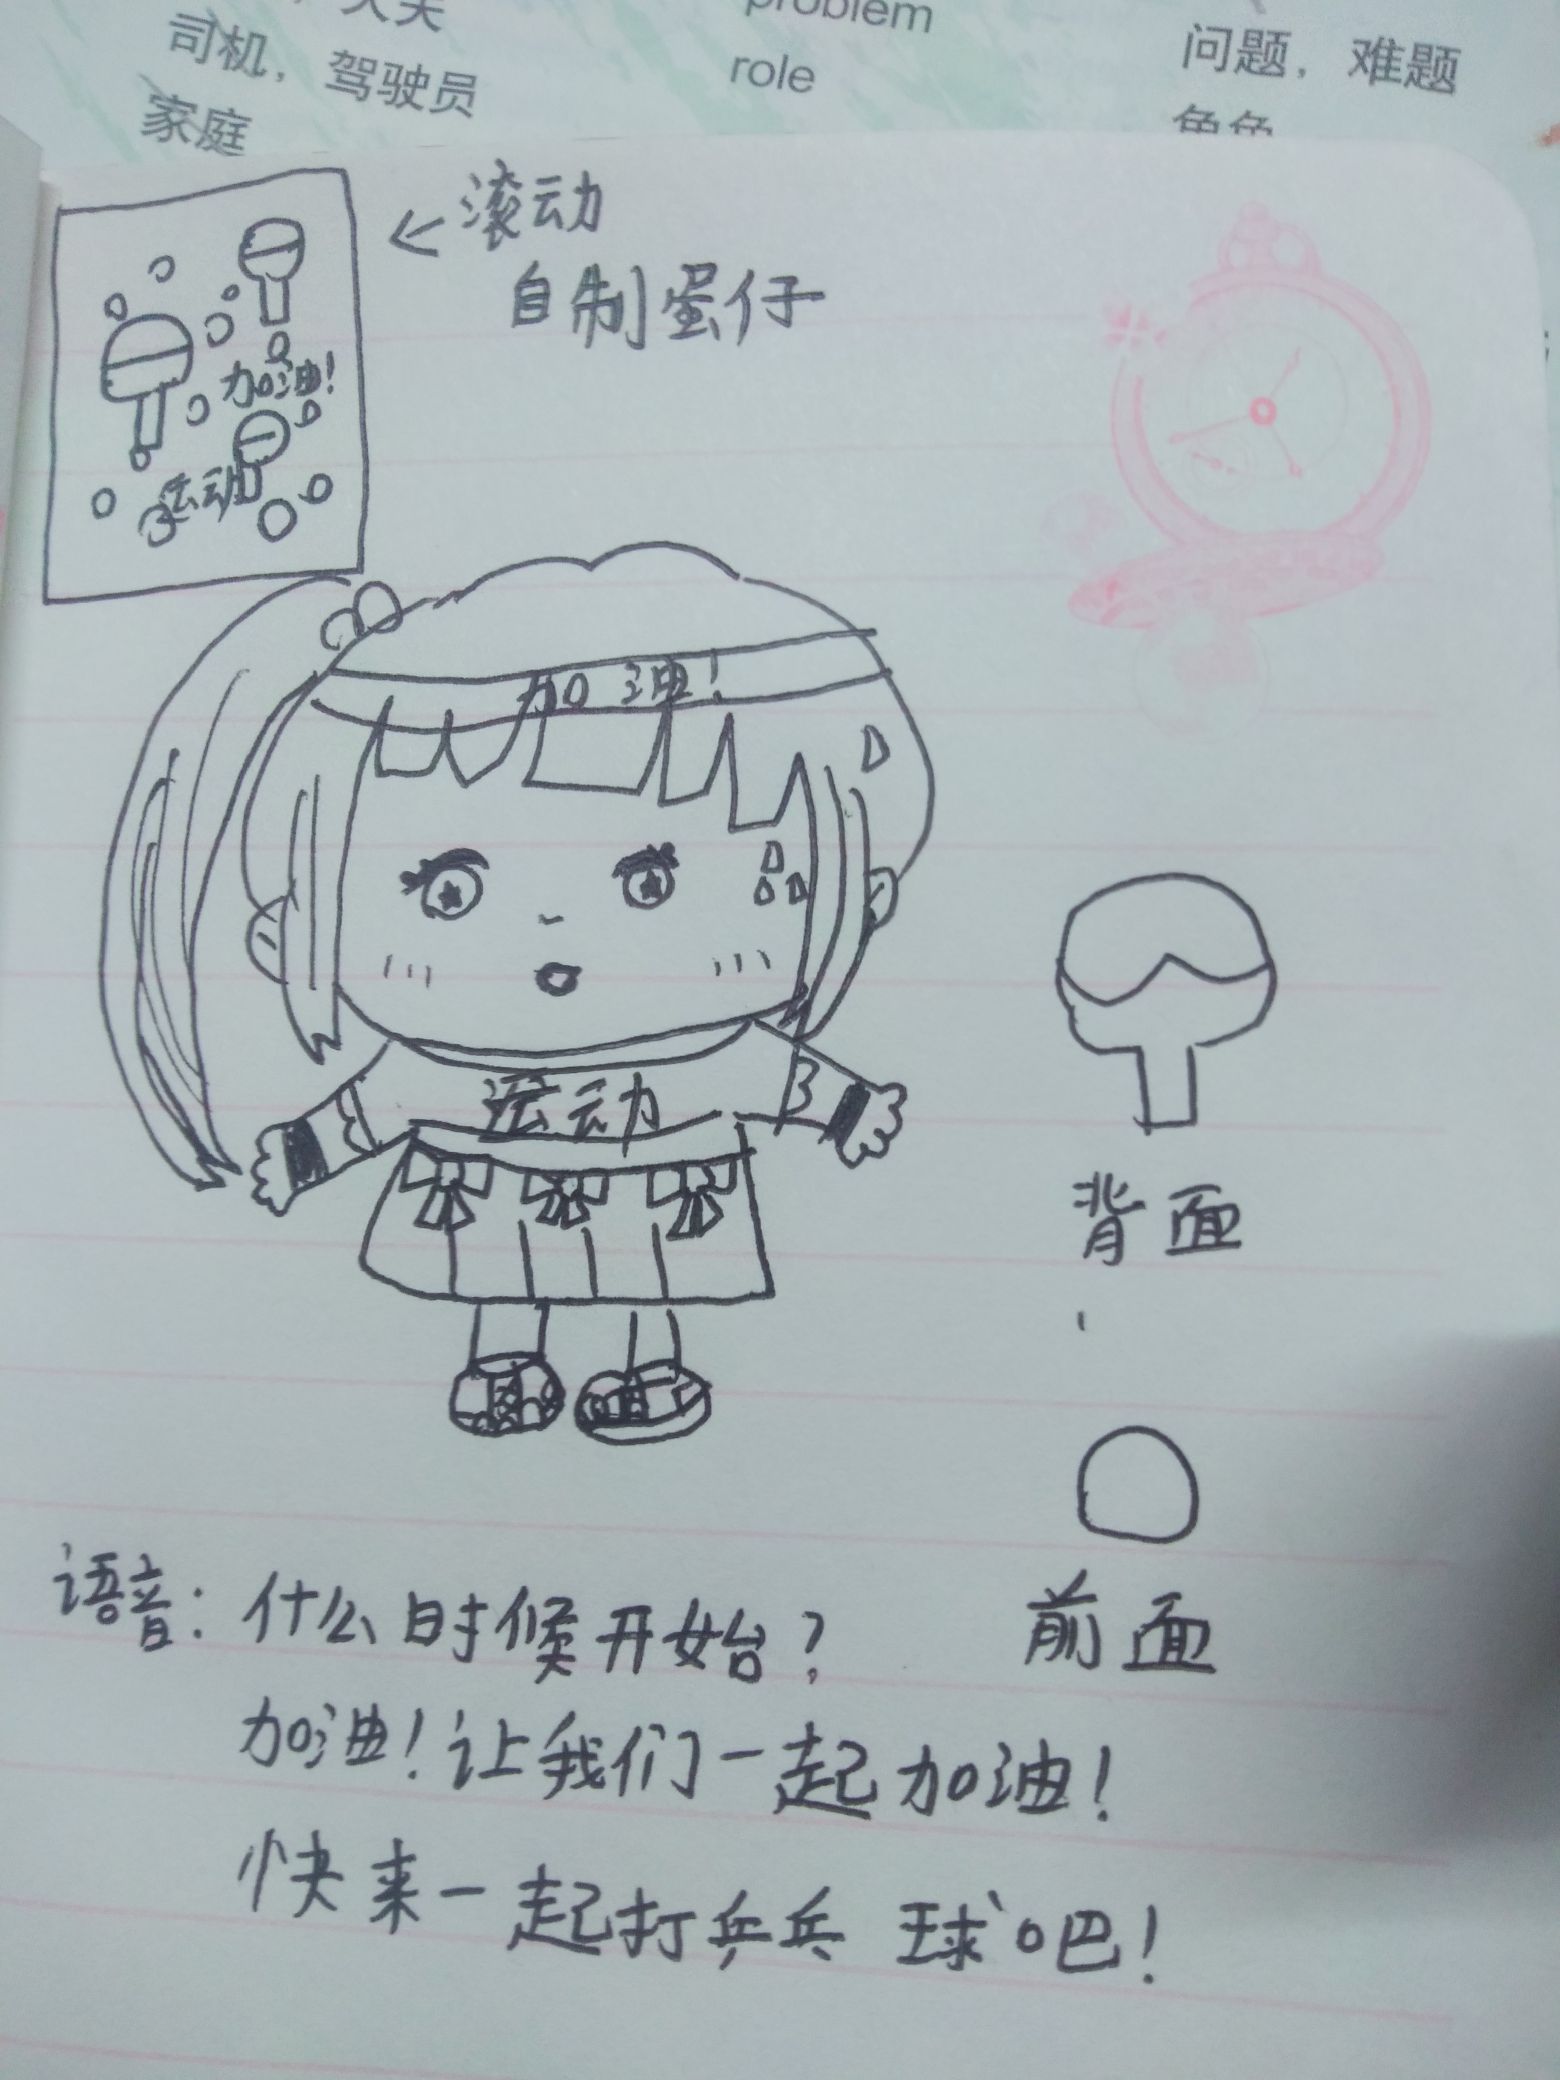 司机，驾驶员
家庭
problem
role
问题，难题
滚动
自制蛋仔
加油！
运动
加油！
运动
背面
前面
语音：什么时候开始？
加油！让我们一起加油！
快来一起打乒乓球吧！